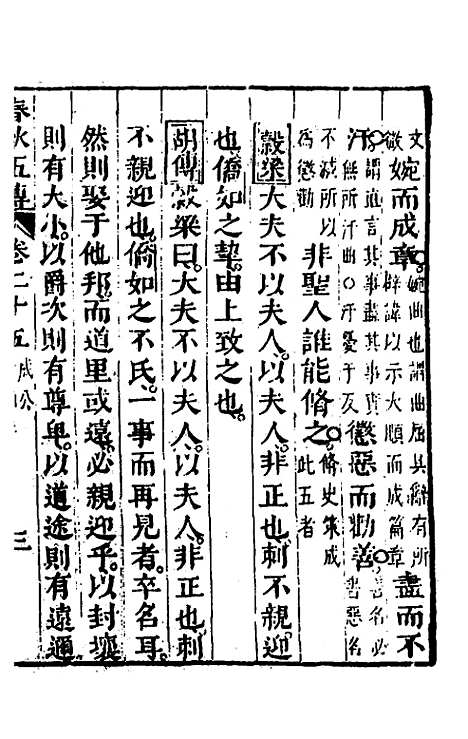 文
微婉而成章婉曲也謂曲屈其辭有所辟諱以示大順而成篇章盡而不
汙謂直言其事盡其事實無所汙曲○汙憂于反懲惡而勸善善名必書惡名
不滅所以為懲勸非聖人誰能脩之脩史策成此五者
穀梁大夫不以夫人以夫人非正也刺不親迎
也僑如之挈由上致之也
胡傳穀梁曰大夫不以夫人以夫人非正也刺
不親迎也僑如之不氏一事而再見者卒名耳
然則娶于他邦而道里或遠必親迎乎以封壤
則有大小以爵次則有尊卑以道途則有遠邇
春秋五傳 卷二十五 成公 三